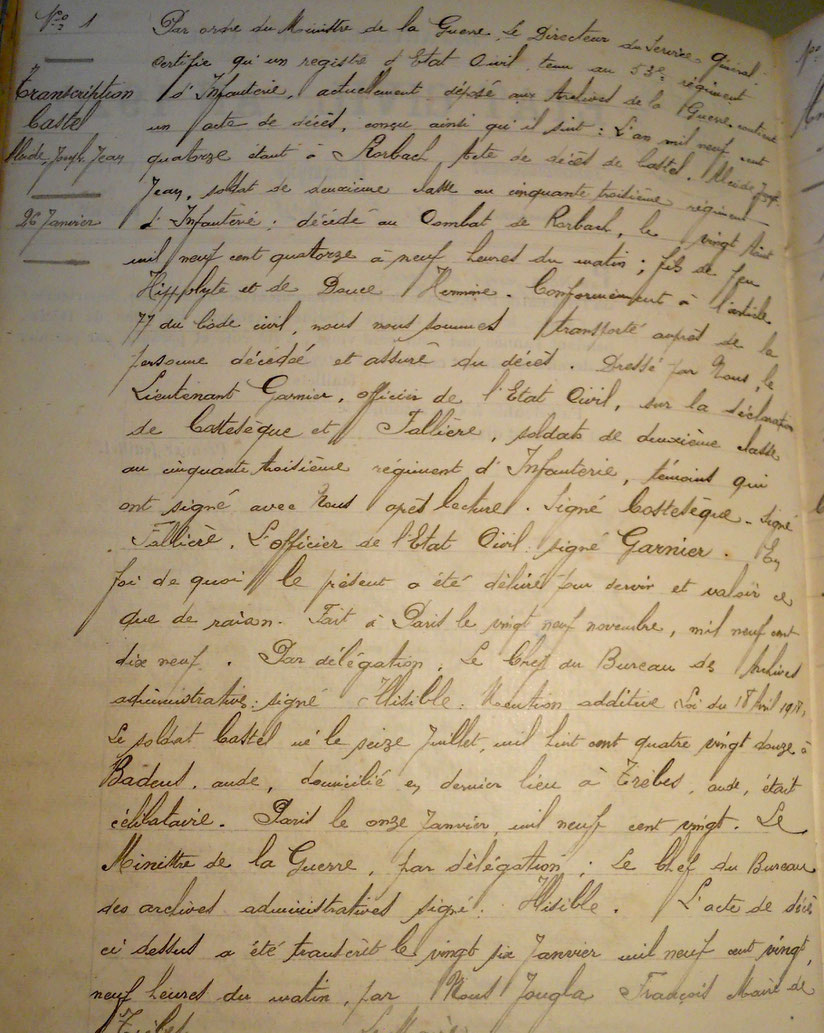 N° 1
Transcription
Castel
Joseph Jean
26 Janvier
Par ordre du Ministre de la Guerre, le Directeur du Service général
certifie qu'un registre d'Etat Civil tenu au 53e régiment
d'Infanterie, actuellement déposé aux Archives de la Guerre contient
un acte de décès, conçu ainsi qu'il suit : L'an mil neuf cent
quatorze étant à Rorbach, Acte de décès de Castel.
Jean, soldat de deuxième classe au cinquante troisième régiment
d'Infanterie ; décédé au Combat de Rorbach, le vingt Août
mil neuf cent quatorze à neuf heures du matin ; fils de feu
Hippolyte et de Douce Hermine. Conformément à l'article
77 du Code civil, nous nous sommes transporté auprès de la
personne décédée et assuré du décès. Dressé par Nous, le
Lieutenant Garnier, officier de l'Etat Civil, sur la déclaration
de Castesèque et Fallière, soldats de deuxième classe
au cinquante troisième régiment d'Infanterie, témoins qui
ont signé avec Nous après lecture. Signé Castesèque. Signé
Fallière. L'officier de l'Etat Civil signé Garnier. En
foi de quoi le présent a été délivré pour servir et valoir ce
que de raison. Fait à Paris le vingt neuf novembre, mil neuf cent
dix neuf. Par délégation, Le Chef du Bureau des Archives
administratives : signé Illisible. Mention additive (Loi du 18 Avril 1918)
Le soldat Castel né le seize Juillet, mil huit cent quatre vingt douze à
Badens, aude, domicilié en dernier lieu à Trèbes, aude, était
célibataire. Paris le onze Janvier, mil neuf cent vingt. Le
Ministre de la Guerre, par délégation ; Le Chef du Bureau
des archives administratives signé : Illisible. L'acte de décès
ci dessus a été transcrit le vingt six Janvier mil neuf cent vingt,
neuf heures du matin, par Nous Jougla François Maire de
Trèbes Le Maire